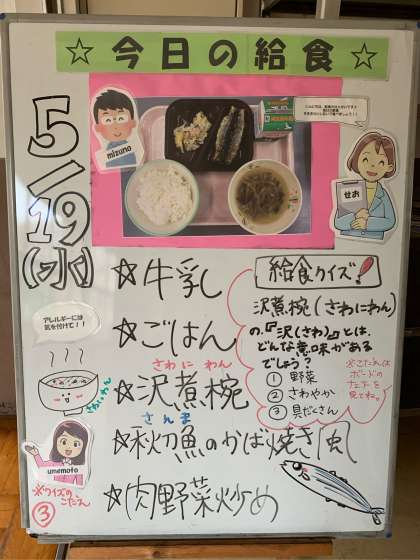 ☆今日の給食☆
5/19(水)
mizuno
せお
アレルギーには
気を付けて!!
さわにわん
umemoto
※クイズの
こたえ
③
☆牛乳
☆ごはん
さわに わん
☆沢煮椀
さんま
☆秋刀魚のかば焼き風
☆肉野菜炒め
給食クイズ!
沢煮椀(さわにわん)
の、『沢(さわ)』とは、
どんな意味がある
でしょう?
① 野菜
② さわやか
③ 具だくさん
※こたえは
ボードの
左下を
見てね。